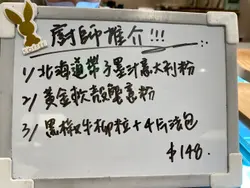 廚師推介!!!
1/ 北海道帶子墨汁意大利粉
2/ 黃金軟殼蟹意粉
3/ 黑椒牛柳粒+4斤法包
$148.